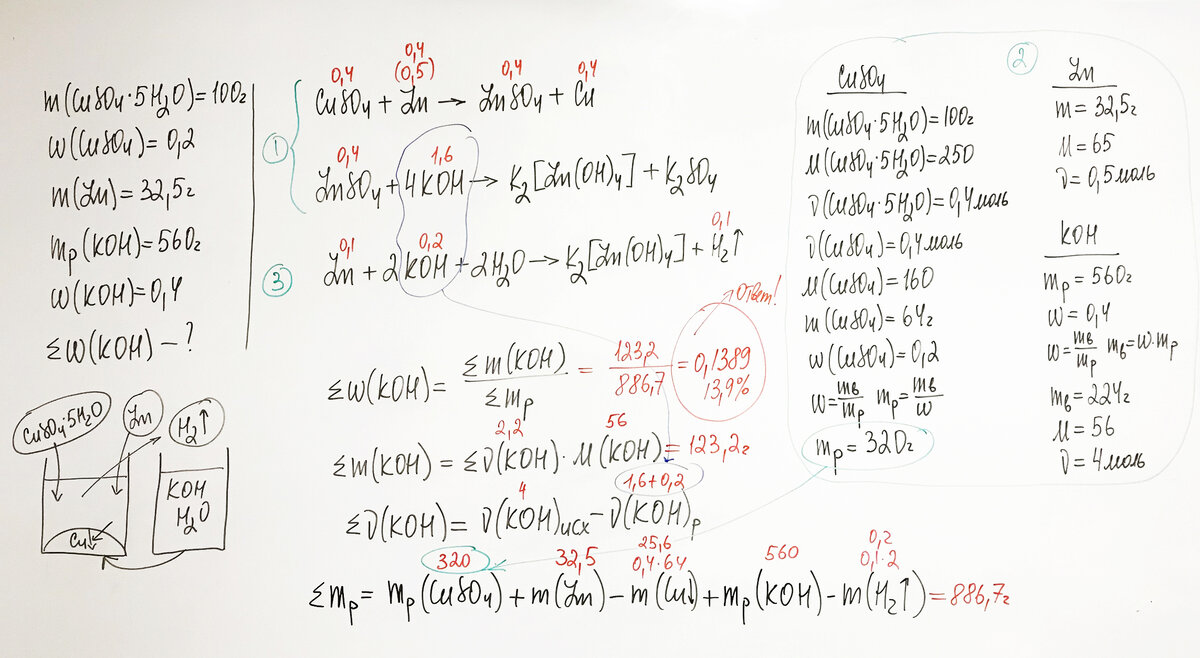 m(CuSO₄·5H₂O)=100г
w(CuSO₄)=0,2
m(Zn)=32,5г
mр(KOH)=560г
w(KOH)=0,4
Σw(KOH)–?
CuSO₄·5H₂O
Zn
H₂↑
KOH
H₂O
Cu↓
①
0,4
0,4
(0,5)
0,4
0,4
CuSO₄ + Zn → ZnSO₄ + Cu
0,4
1,6
ZnSO₄ + 4KOH → K₂[Zn(OH)₄] + K₂SO₄
③
0,1
0,2
0,1
Zn + 2KOH + 2H₂O → K₂[Zn(OH)₄] + H₂↑
Ответ!
Σw(KOH) = Σm(KOH) / Σmр = 123,2 / 886,7 = 0,1389
13,9%
2,2
56
Σm(KOH) = Σν(KOH)·M(KOH) = 123,2г
4
1,6+0,2
Σν(KOH) = ν(KOH)исх – ν(KOH)р
320
32,5
25,6
0,4·64
560
0,2
0,1·2
Σmр = mр(CuSO₄) + m(Zn) – m(Cu↓) + mр(KOH) – m(H₂↑) = 886,7г
②
CuSO₄
m(CuSO₄·5H₂O)=100г
M(CuSO₄·5H₂O)=250
ν(CuSO₄·5H₂O)=0,4моль
ν(CuSO₄)=0,4моль
M(CuSO₄)=160
m(CuSO₄)=64г
w(CuSO₄)=0,2
w=mв/mр mр=mв/w
mр=320г
Zn
m=32,5г
M=65
ν=0,5моль
KOH
mр=560г
w=0,4
w=mв/mр mв=w·mр
mв=224г
M=56
ν=4моль